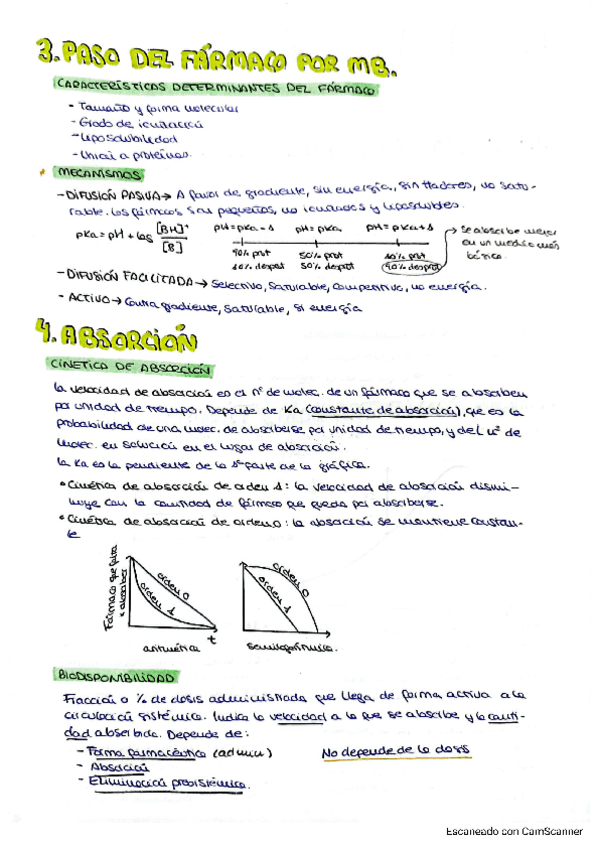 3. PASO DEL FÁRMACO POR MB.
CARACTERÍSTICAS DETERMINANTES DEL FÁRMACO
- Tamaño y forma molecular
- Grado de ionización
- Liposolubilidad
- Unión a proteínas.
MECANISMOS
- DIFUSIÓN PASIVA → A favor de gradiente, sin energía, sin ttadores, no satu-
rable. Los fármacos son pequeños, no ionizados y liposolubles.
pKa = pH + log [BH]⁺ / [B]
pH = pKa - 1 pH = pKa pH = pKa + 1
90% prot 50% prot 10% prot
10% desprot 50% desprot 90% desprot
se absorbe mejor
en un medio más
básico.
- DIFUSIÓN FACILITADA → Selectivo, saturable, competitivo, no energía.
- ACTIVO → Contra gradiente, saturable, sí energía
4. ABSORCIÓN
CINÉTICA DE ABSORCIÓN
La velocidad de absorción es el nº de molec. de un fármaco que se absorben
por unidad de tiempo. Depende de Ka (constante de absorción), que es la
probabilidad de una molec. de absorberse por unidad de tiempo, y del nº de
molec. en solución en el lugar de absorción.
La Ka es la pendiente de la 1ª parte de la gráfica.
• Cinética de absorción de orden 1: la velocidad de absorción dismi-
nuye con la cantidad de fármaco que queda por absorberse.
• Cinética de absorción de orden 0: la absorción se mantiene constan-
te
Fármaco que falta
x absorber
orden 0
orden 1
t
aritmética
orden 0
orden 1
semilogarítmica.
BIODISPONIBILIDAD
Fracción o % de dosis administrada que llega de forma activa a la
circulación sistémica. Indica la velocidad a la que se absorbe y la canti-
dad absorbida. Depende de:
- Forma farmacéutica (admin)
No depende de la dosis
- Absorción
- Eliminación presistémica.
Escaneado con CamScanner